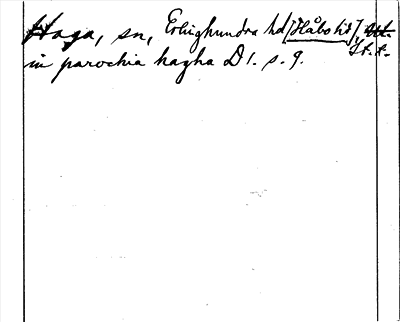 Haga, sn, Erlinghundra hd [Håbo hd],
St. t.
in parochia hagha D 1. s. 9.